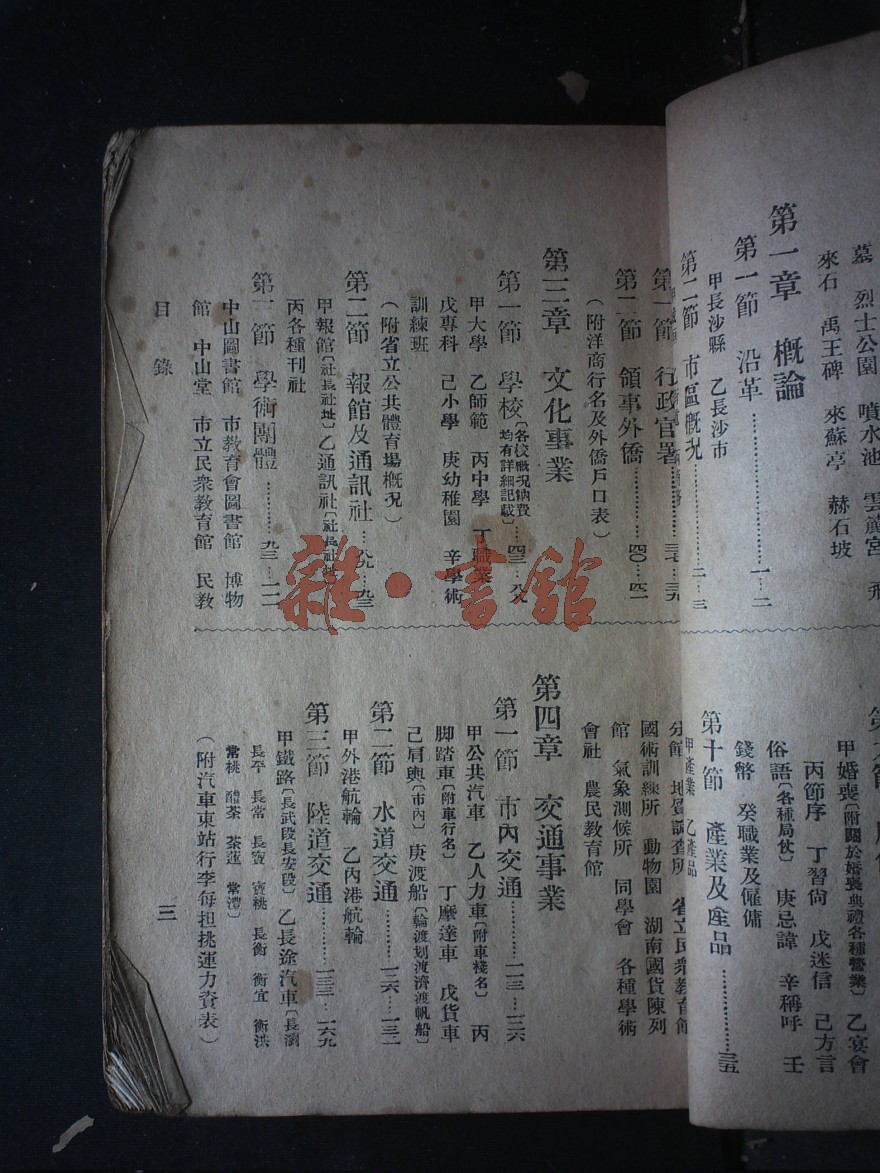 墓　烈士公園　噴水池　雲麓宮　飛
來石　禹王碑　來蘇亭　赫石坡
第一章　概論
第一節　沿革……一‥二
甲長沙縣　乙長沙市
第二節　市區概況……二‥三
甲婚喪〔附關於婚喪典禮各種營業〕乙宴會
丙節序　丁習尙　戊迷信　己方言
俗語〔各種局伙〕庚忌諱　辛稱呼　壬
錢幣　癸職業及僱傭
第十節　產業及產品……三五
甲產業　乙產品
第一節　行政官署……三七‥三九
第二節　領事外僑……四〇‥四二
（附洋商行名及外僑戶口表）
第三章　文化事業
第一節　學校〔各校概況納費均有詳細記載〕……四三‥八九
甲大學　乙師範　丙中學　丁職業
戊專科　己小學　庚幼稚園　辛學術
訓練班
（附省立公共體育場概況）
第二節　報館及通訊社……八九‥九三
甲報館〔社長社址〕乙通訊社〔社長社址〕
丙各種刊社
第三節　學術團體……九三‥一一二
中山圖書館　市教育會圖書館　博物
館　中山堂　市立民衆教育館　民教
分館　地質調查所　省立民衆教育館
國術訓練所　動物園　湖南國貨陳列
館　氣象測候所　同學會　各種學術
會社　農民教育館
第四章　交通事業
第一節　市內交通……一一三‥一二六
甲公共汽車　乙人力車〔附車棧名〕　丙
脚踏車〔附車行名〕　丁摩達車　戊貨車
己肩輿〔市內〕庚渡船〔輪渡划渡濟渡帆船〕
第二節　水道交通……一二六‥一三二
甲外港航輪　乙內港航輪
第三節　陸道交通……一三三‥一六九
甲鐵路〔長武段長安段〕乙長途汽車〔長瀏
長平　長常　長寶　寶桃　長衡　衡宜　衡洪
常桃　醴茶　茶蓮　常澧〕
（附汽車東站行李每担挑運力資表）
目錄
三
雜·書館